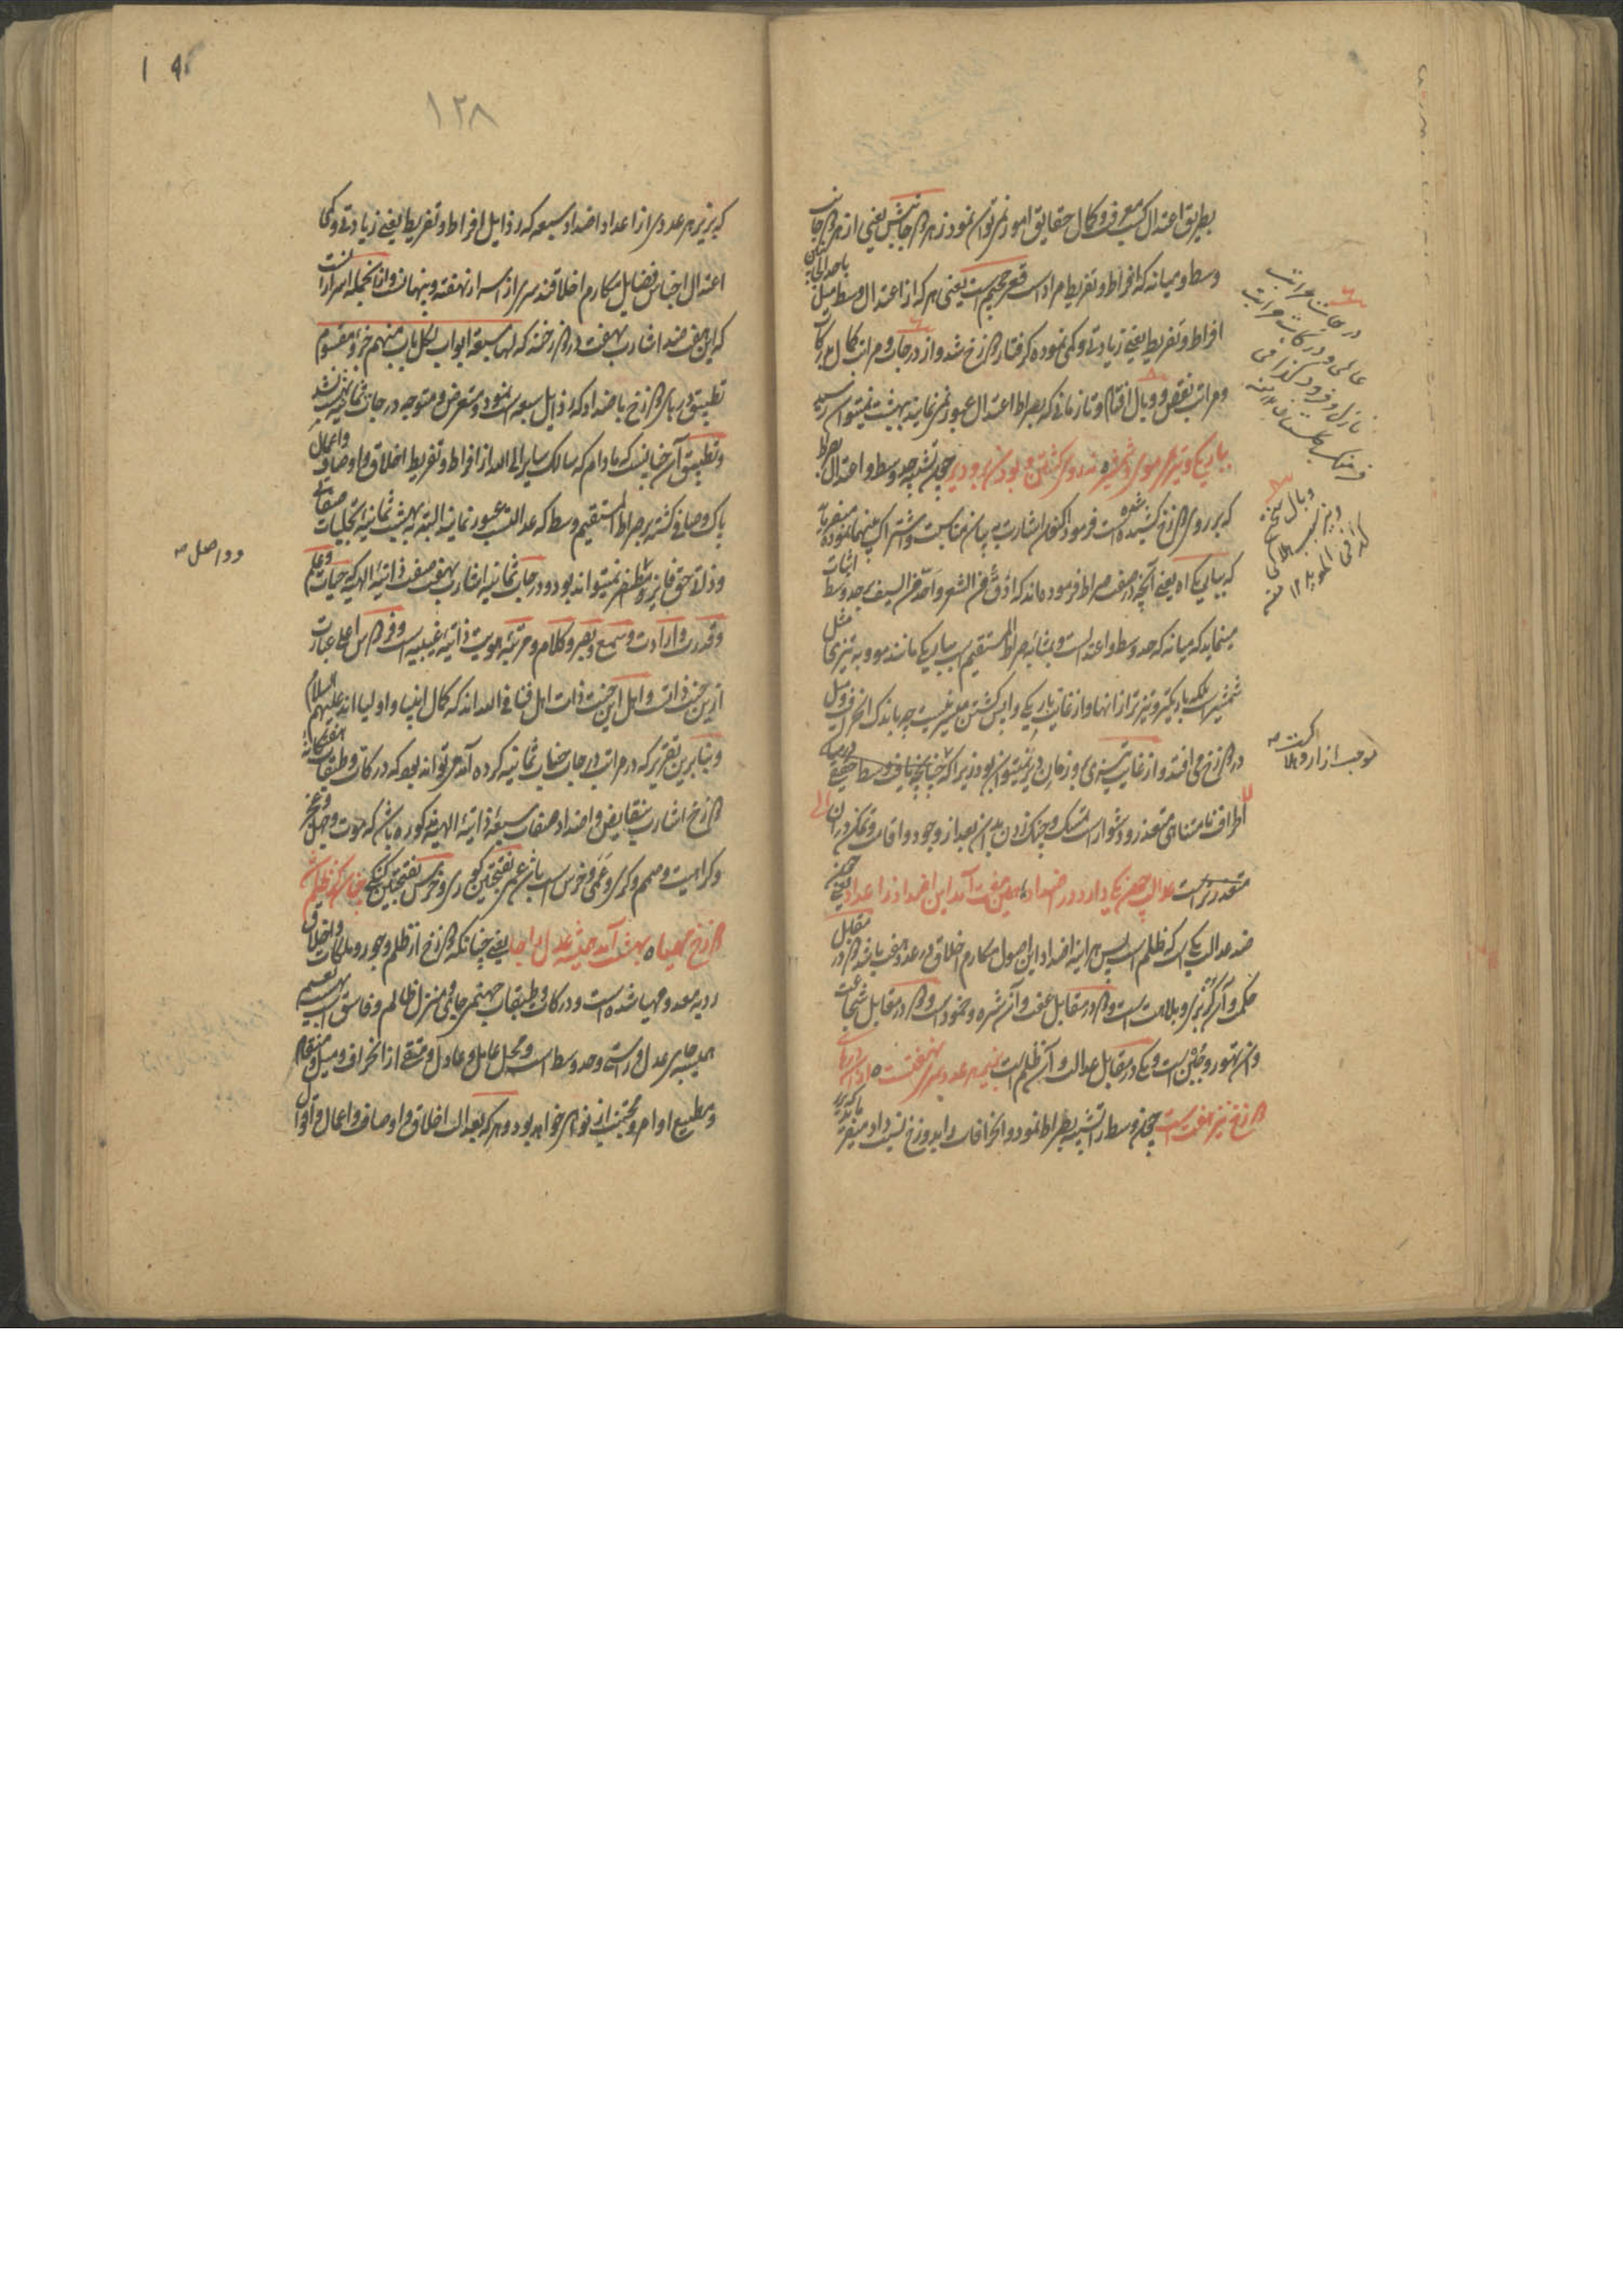 بطریق اعتدال کسب معرفت و کمال حقایق امور نمی توان نمود ز هر دو جانبش یعنی از هر دو جانب
وسط و میانه که افراط و تفریط مراد است قعر جحیم است یعنی هر که از اعتدال وسط میل با احد الجانبین
افراط و تفریط یعنی زیادتی و کمی نموده گرفتار دوزخ شد و از درجات و مراتب کمال بدرکات
و مراتب نقص و وبال افتاد و تا زمانی که بصراط اعتدال عبور نمی نماید به بهشت نمیتوان رسید
بباریکی و تیزی موی و شمشیر ه نه روی گشتن و بودن برو دیر چون تشبیه حد وسط و اعتدال بصراط
که بر روی دوزخ کشیده شده است فرمود اکنون اشارت به بیان مناسبت و اشتراک بینهما نموده میفرماید
که بباریکی اه یعنی آنچه در صفت صراط فرموده اند که ادق من الشعر و احد من السیف بحد وسط اثبات
مینماید که میانه که حد وسط و اعتدالست و بمثابه صراط المستقیم است بباریکی مانند مو و به تیزی مثل
شمشیر است بلکه باریکتر و تیزتر از انها و از غایت باریکی واپس گشتن میسر نیست چه باندک انحراف و میل
در دوزخ می افتد و از غایت تیزی برو زمان دیر نمیتوان بود زیرا که چنانچه یافت وسط حقیقی در میانه
اطراف نامتناهی متعذر و دشوار است تمسک و چنگ زدن بدان بعد از وجود و اقامت و تمکن در ان
متعذرتر است عدالت چون یکی دارد ز اضداد ه همین هفت آمد این اضداد ز اعداد یعنی چون
ضد عدالت یکیست که ظلم است پس هر آینه اضداد این اصول مکارم اخلاق در عدد هفت باشد دو در مقابل
حکمت و آن گربزی و بلاهت است و دو در مقابل عفت و آن شره و خمود است و دو در مقابل شجاعت
و آن تهور و جبن است و یکی در مقابل عدالت و آن ظلم است بزیر هر عدد سری نهفته است ه از آن درهای
دوزخ نیز هفت است چون وسط را تشبیه بصراط نمود و انحرافات را بدوزخ نسبت داد میفرماید
درجات مراتب
عالی و درکات مراتب
نازل و فرود
موجب ازار و هلاکت
۱۲۸
که بزیر هر عددی از اعداد اضداد سبعه که رذایل افراط و تفریط یعنی زیادتی و کمی
اعتدال اجناس فضایل مکارم اخلاقند سری از اسرار نهفته و پنهانست و از انجمله اسرار انست
که این هفت ضد اشارت بهفت در دوزخند که لها سبعة ابواب لکل باب منهم جزء مقسوم
تطبیق درهای دوزخ باضداد که رذایل سبعه است نمود و متعرض و متوجه درجات ثمانیه بهشت نشد
و تطبیق آن چنانست که مادام که سالک سایر الی الله از افراط و تفریط اخلاق و اوصاف و اعمال
پاک و صافی گشته بر صراط المستقیم وسط که عدالتست عبور نماید البته به بهشت ثمانیه تجلیات صفاتی
و ذات حق فایز و مظفر نمیتواند بود و درجات ثمانیه اشارت بهفت صفت ذاتیه الهیه که حیات و علم
و قدرت و ارادت و سمع و بصر و کلام و مرتبه هویت ذاتیه غیبیه است و فردوس اعلی عبارت
ازین جنت ذاتست و اهل این جنت ذات اهل فنا فی الله اند که کمال انبیا و اولیا اند علیهم السلام
و بنابرین تقریر که در مراتب درجات جنات ثمانیه کرده آمد می تواند بود که درکات و طبقات هفتگانه
دوزخ اشارت بنقایض و اضداد صفات سبعه ذاتیه الهیه مذکوره باشد که موت و جهل و عجز
و کراهیت و صمم و کری و عمی و خرس است
دوزخ مهیا ه بهشت آمد همیشه عدل را جا یعنی چنانکه دوزخ از ظلم و جور و ملکات و اخلاق
ردیه معد و مهیا شده است و درکات و طبقات جهنم جای و منزل ظالم و فاسق است بهشت نعیم
همیشه جای عدل و راستی و حد وسط است و محل عامل و عادل و متقی از انحراف و میل و منقاد
و مطیع اوامر و مجتنب از نواهی خواهد بود و هر که بعدالت اخلاق و اوصاف و اعمال و اقوال
و واصل